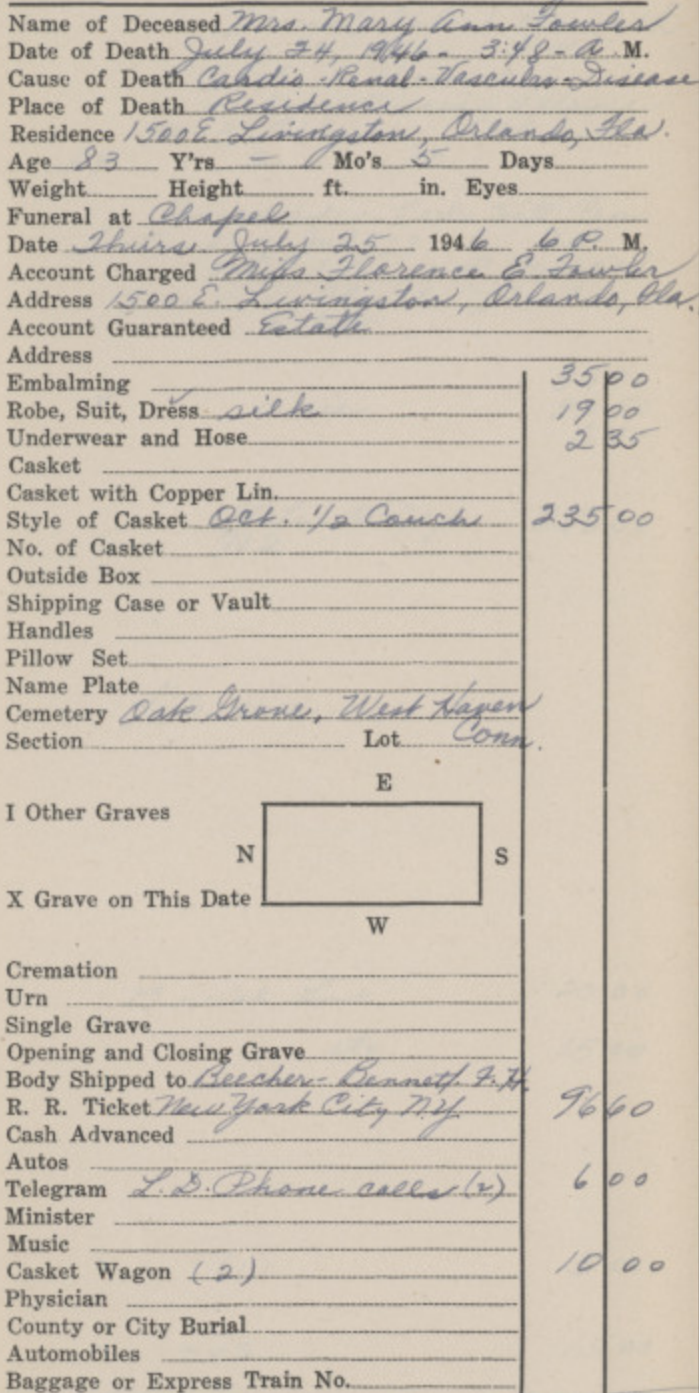 Name of Deceased Mrs. Mary Ann Fowler
Date of Death July 24, 1946 - 3:48 - A M.
Cause of Death Cardio-Renal-Vascular-Disease
Place of Death Residence
Residence 1500 E. Livingston, Orlando, Fla.
Age 83 Y'rs — Mo's 5 Days
Weight Height ft. in. Eyes
Funeral at Chapel
Date Thurs. July 25 1946 6 P. M.
Account Charged Miss Florence E. Fowler
Address 1500 E. Livingston, Orlando, Fla.
Account Guaranteed Estate
Address
Embalming 35 00
Robe, Suit, Dress silk 19 00
Underwear and Hose 2 35
Casket
Casket with Copper Lin.
Style of Casket Oct. 1/2 Couch 235 00
No. of Casket
Outside Box
Shipping Case or Vault
Handles
Pillow Set
Name Plate
Cemetery Oak Grove, West Haven
Section Lot Conn.
E
I Other Graves
N S
X Grave on This Date
W
Cremation
Urn
Single Grave
Opening and Closing Grave
Body Shipped to Beecher-Bennett F. H.
R. R. Ticket New York City N.Y. 96 60
Cash Advanced
Autos
Telegram L.D. Phone calls (2) 6 00
Minister
Music
Casket Wagon (2) 10 00
Physician
County or City Burial
Automobiles
Baggage or Express Train No.